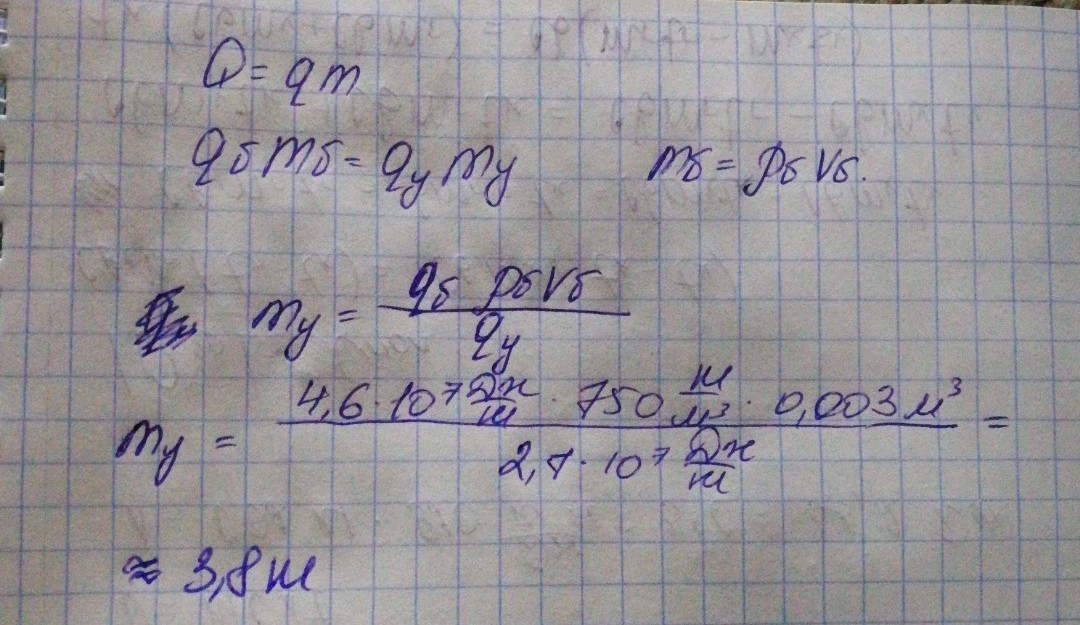 Q = qm
qб mб = qу mу    mб = ρб Vб.
mу = qб ρб Vб / qу
mу = 4,6 · 10⁷ Дж/кг · 750 кг/м³ · 0,003 м³ / 2,7 · 10⁷ Дж/кг =
≈ 3,8 кг